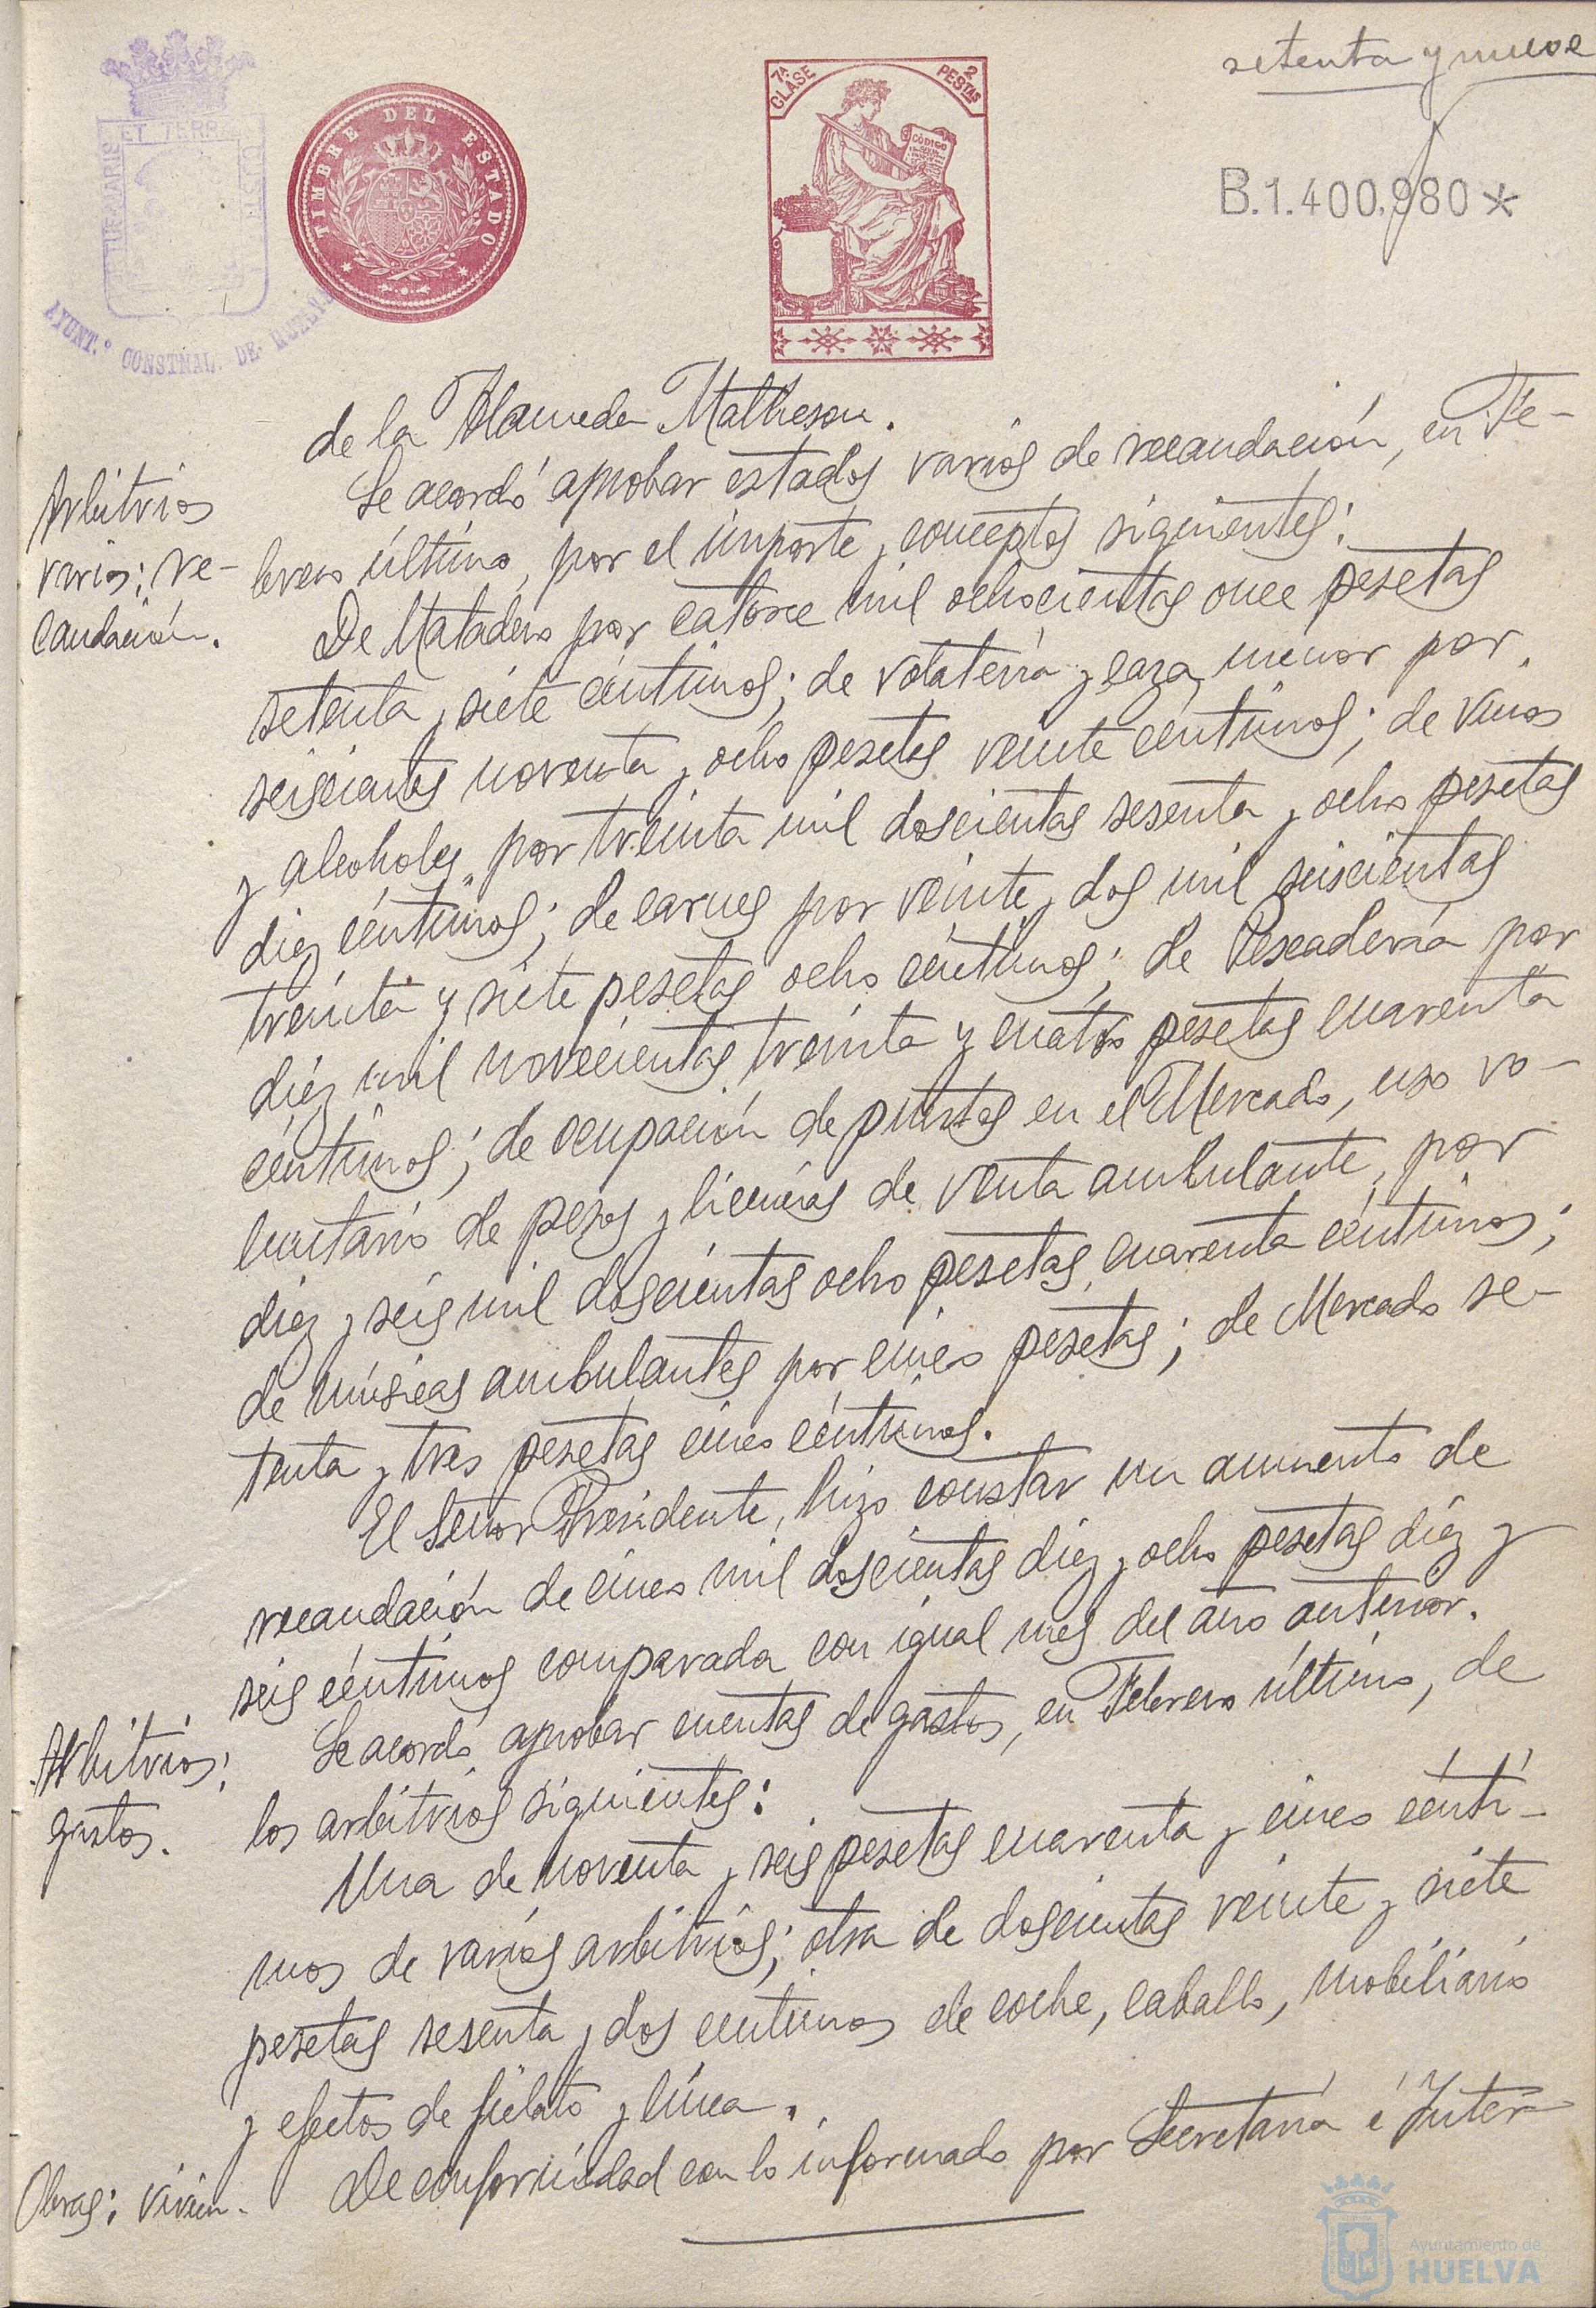 setenta y nueve
7ª CLASE
2 PESTAS
CÓDIGO
TIMBRE DEL ESTADO
B.1.400,980*
AYUNT.º CONSTNAL. DE HUELVA
de la Alameda Matheson.
Arbitrios
varios; re-
caudación.
Se acordó aprobar estados varios de recaudación, en Fe-
brero último, por el importe y conceptos siguientes:
De Matadero por catorce mil ochocientas once pesetas
setenta y siete céntimos; de volatería y caza menor por
seiscientas noventa y ocho pesetas veinte céntimos; de vinos
y alcoholes, por treinta mil doscientas sesenta y ocho pesetas
diez céntimos; de carnes por veinte y dos mil seiscientas
treinta y siete pesetas ocho céntimos; de Pescadería por
diez mil novecientas treinta y cuatro pesetas cuarenta
céntimos; de ocupación de puestos en el Mercado, uso vo-
luntario de pesos y licencias de venta ambulante, por
diez y seis mil doscientas ocho pesetas cuarenta céntimos;
de músicas ambulantes por cinco pesetas; de Mercado se-
tenta y tres pesetas cinco céntimos.
El Señor Presidente, hizo constar un aumento de
recaudación de cinco mil doscientas diez y ocho pesetas diez y
seis céntimos comparada con igual mes del año anterior.
Arbitrios;
gastos.
Se acordó aprobar cuentas de gastos, en Febrero último, de
los arbitrios siguientes:
Una de noventa y seis pesetas cuarenta y cinco cénti-
mos de varios arbitrios; otra de doscientas veinte y siete
pesetas sesenta y dos centimos de coche, caballo, mobiliario
y efectos de fielato y línea.
Obras: vivien-
De conformidad con lo informado por Secretaría é Inter-
Ayuntamiento de
HUELVA